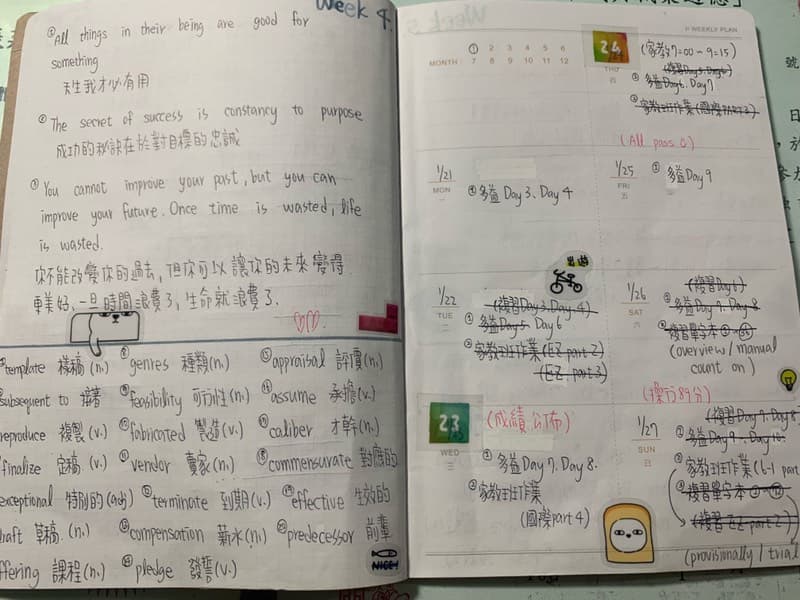 Week 4.
① All things in their being are good for
something
天生我才必有用
② The secret of success is constancy to purpose
成功的秘訣在於對目標的忠誠
③ You cannot improve your past, but you can
improve your future. Once time is wasted, life
is wasted.
你不能改變你的過去,但你可以讓你的未來變得
更美好,一旦時間浪費了,生命就浪費了.
template 樣稿(n.)
subsequent to 接著
reproduce 複製(v.)
finalize 定稿(v.)
exceptional 特別的(adj)
draft 草稿.(n.)
offering 課程(n.)
genres 種類(n.)
feasibility 可行性(n.)
fabricated 製造(v.)
vendor 賣家(n.)
terminate 到期(v.)
compensation 薪水(n.)
pledge 發誓(v.)
appraisal 評價(n.)
assume 承擔(v.)
caliber 才幹(n.)
commensurate 對應的
effective 生效的
predecessor 前輩
NICE!
WEEKLY PLAN
MONTH:
1 2 3 4 5 6
7 8 9 10 11 12
24
THU
四
(家教7:00-9:15)
(複習Day5.Day6)
① 多益Day6.Day7
② 家教班作業(國際PART2)
(All pass.)
1/21
MON
一
① 多益Day3、Day4
1/25
FRI
五
① 多益Day9
出遊
1/22
TUE
二
(複習Day3.Day4)
① 多益Day5 Day6
② 家教班作業(EZ part2)
(EZ part3)
1/26
SAT
六
(複習Day6)
① 多益Day7.Day8
② 複習單字本
(overview / manual
count on)
23
WED
三
(成績公佈)
① 多益Day7.Day8.
② 家教班作業
(國際part4)
(操行89分)
1/27
SUN
日
(複習Day7.Day8
① 多益Day9、Day10
② 家教班作業(6-1 part
③ 複習單字本
(複習EZ part2)
(provisionally / trial